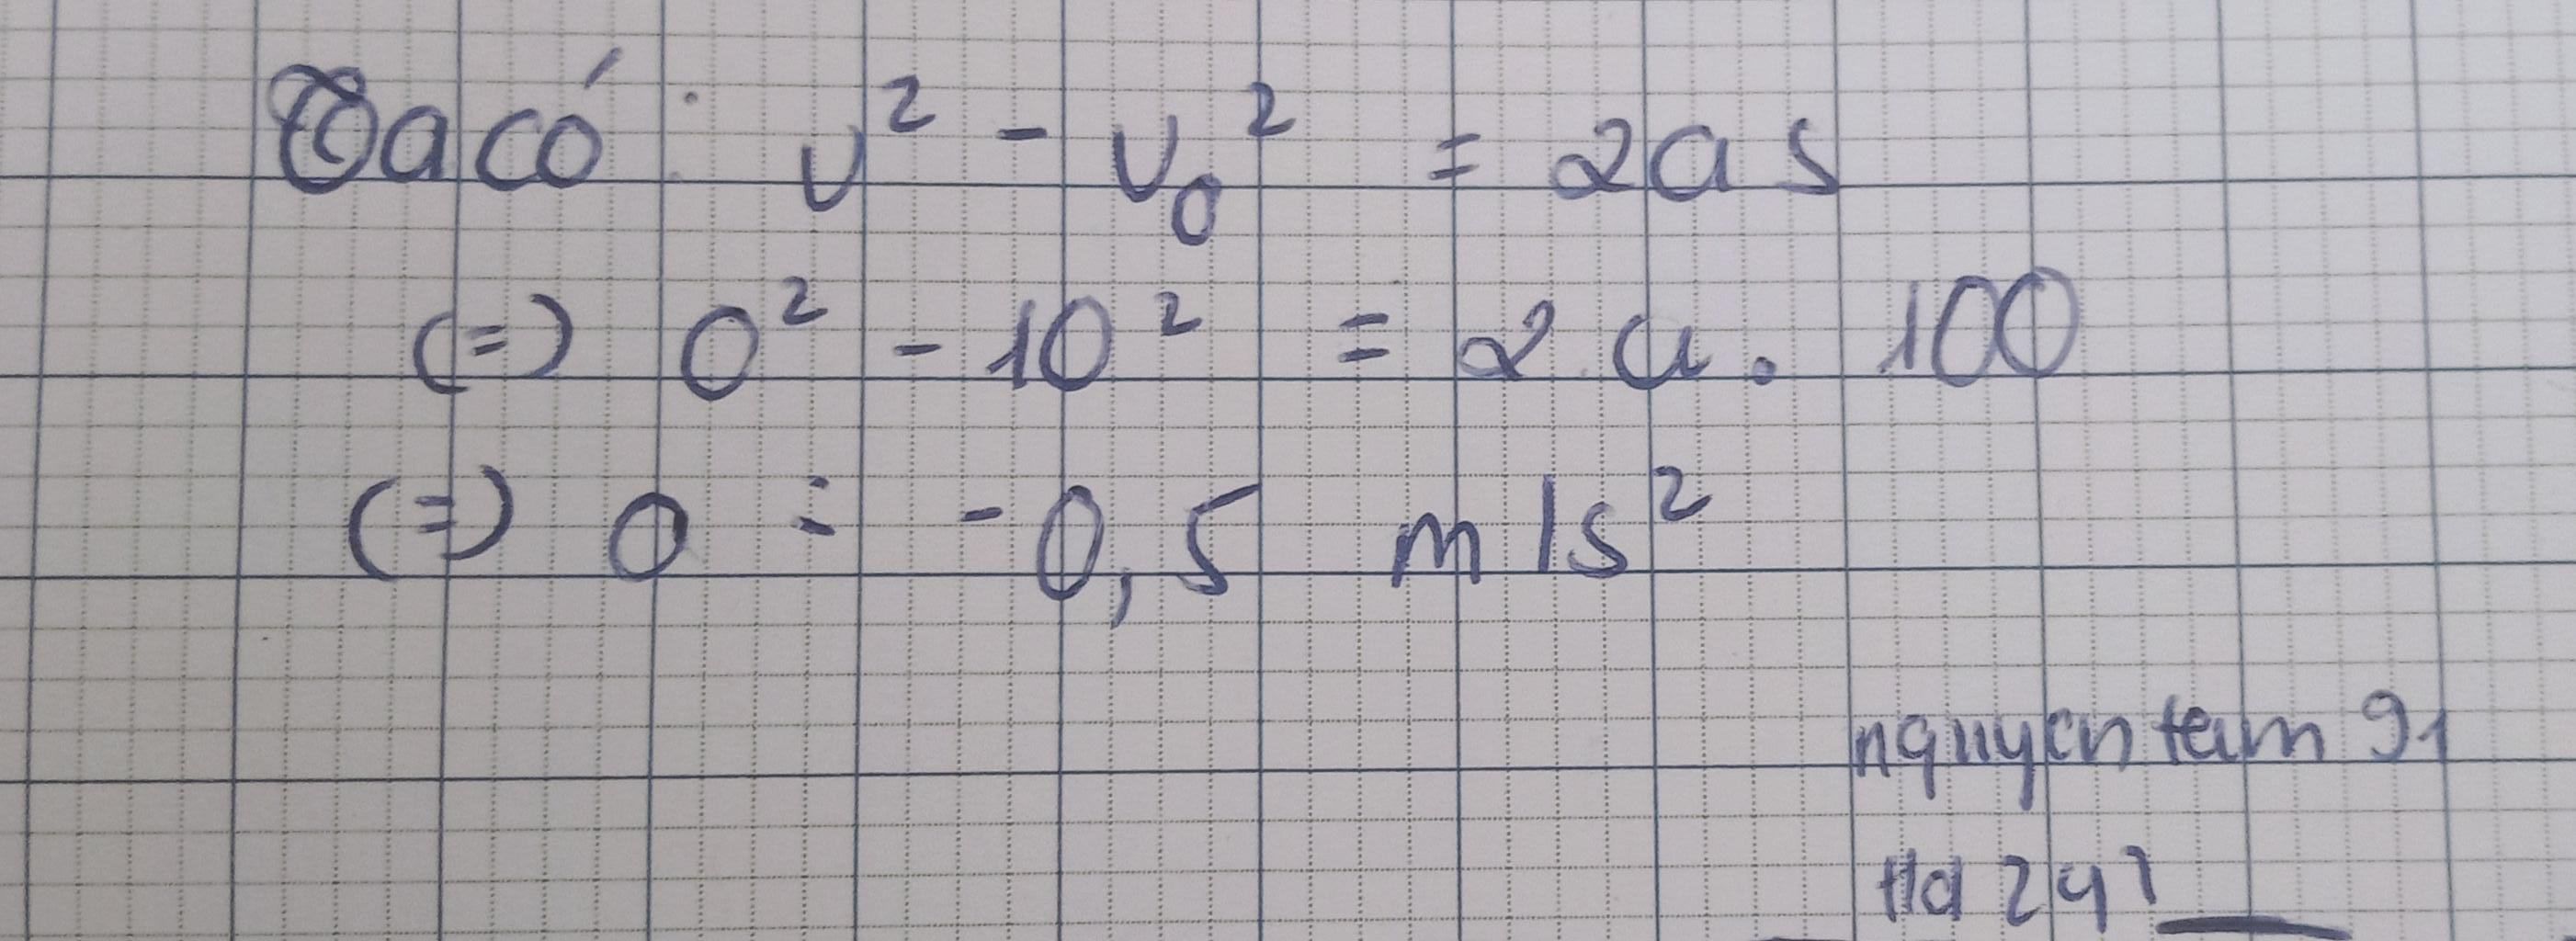 Ta có: v² - v₀² = 2as
(=) 0² - 10² = 2.a. 100
(=) a = -0,5 m/s²
nguyentam91
Hd 247